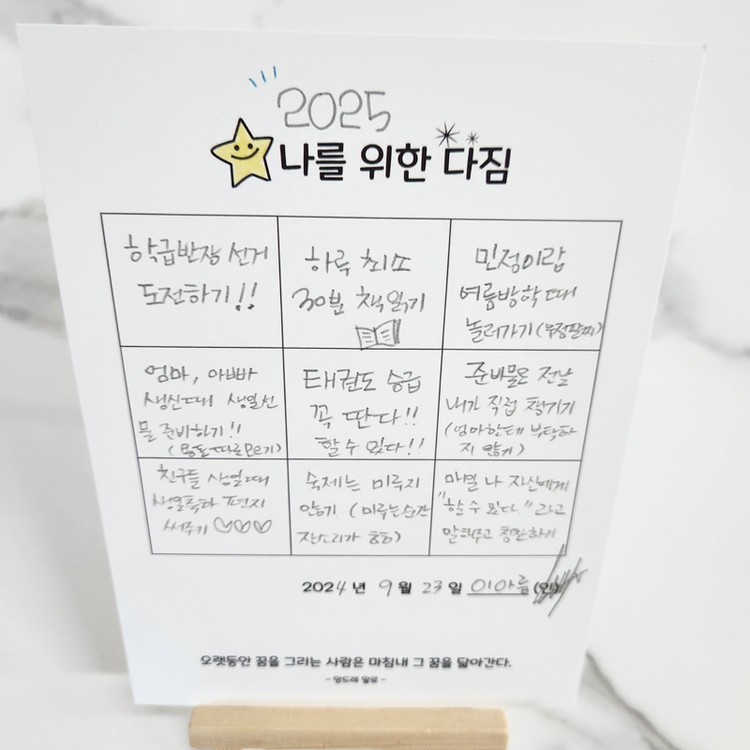 2025
나를 위한 다짐
학급반장 선거
도전하기!!
하루 최소
30분 책읽기
민정이랑
여름방학 때
놀러가기(무정달피)
엄마, 아빠
생신때 생일선
물 준비하기!!
(용돈 따로 모으기)
태권도 승급
꼭 딴다!!
할 수 있다!!
준비물은 전날
내가 직접 챙기기
(엄마한테 부탁하
지 않기)
친구들 생일때
생일축하 편지
써주기 ♡♡♡
숙제는 미루지
않기 (미루는순간
잔소리가 훈훈)
매일 나 자신에게
"할 수 있다." 라고
말해주고 칭찬하기
2024년 9월 23일 이아름 (인)
오랫동안 꿈을 그리는 사람은 마침내 그 꿈을 닮아간다.
- 앙드레 말로 -